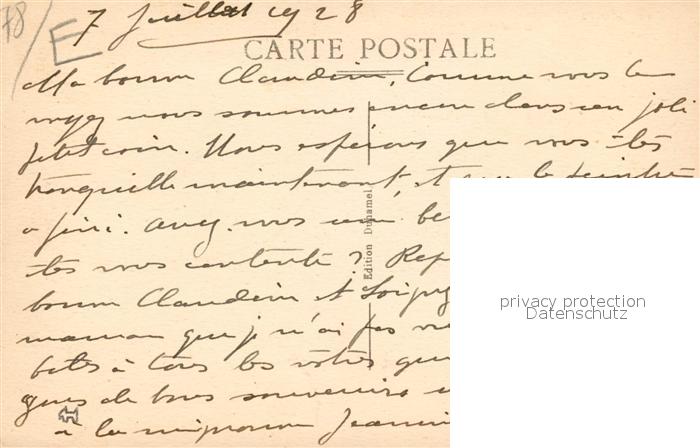 78/E
7 Juillet 1928
CARTE POSTALE
Ma bonne Claudine, Comme vous le
voyez nous sommes encore dans un joli
petit coin. Nous espérons que vous êtes
tranquille maintenant, et que le peintre
a fini. avez vous une
êtes vous contente ?
bonne Claudine et
maman que je n'ai pas
à tous les vôtres
de bons souvenirs
à la mignonne
Edition Duhamel
privacy protection
Datenschutz